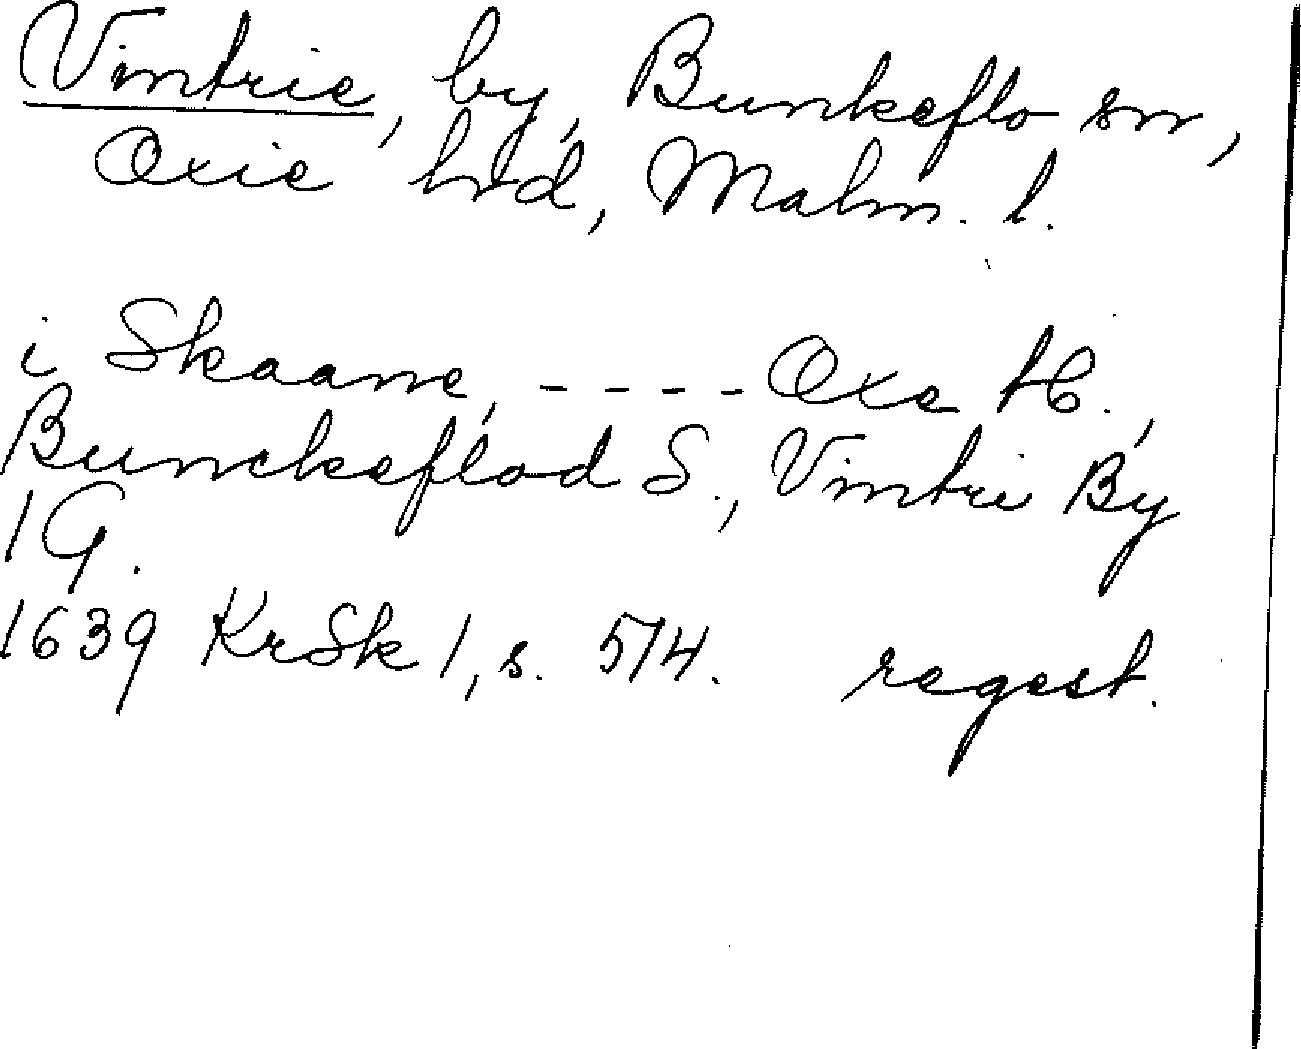 Vintrie, by, Bunkeflo sn,
Oxie hd, Malm. l.
i Skaane, - - - - Oxe H.,
Bunckeflod S., Vintri By
1 G.
1639 KrSk 1, s. 514. regest.